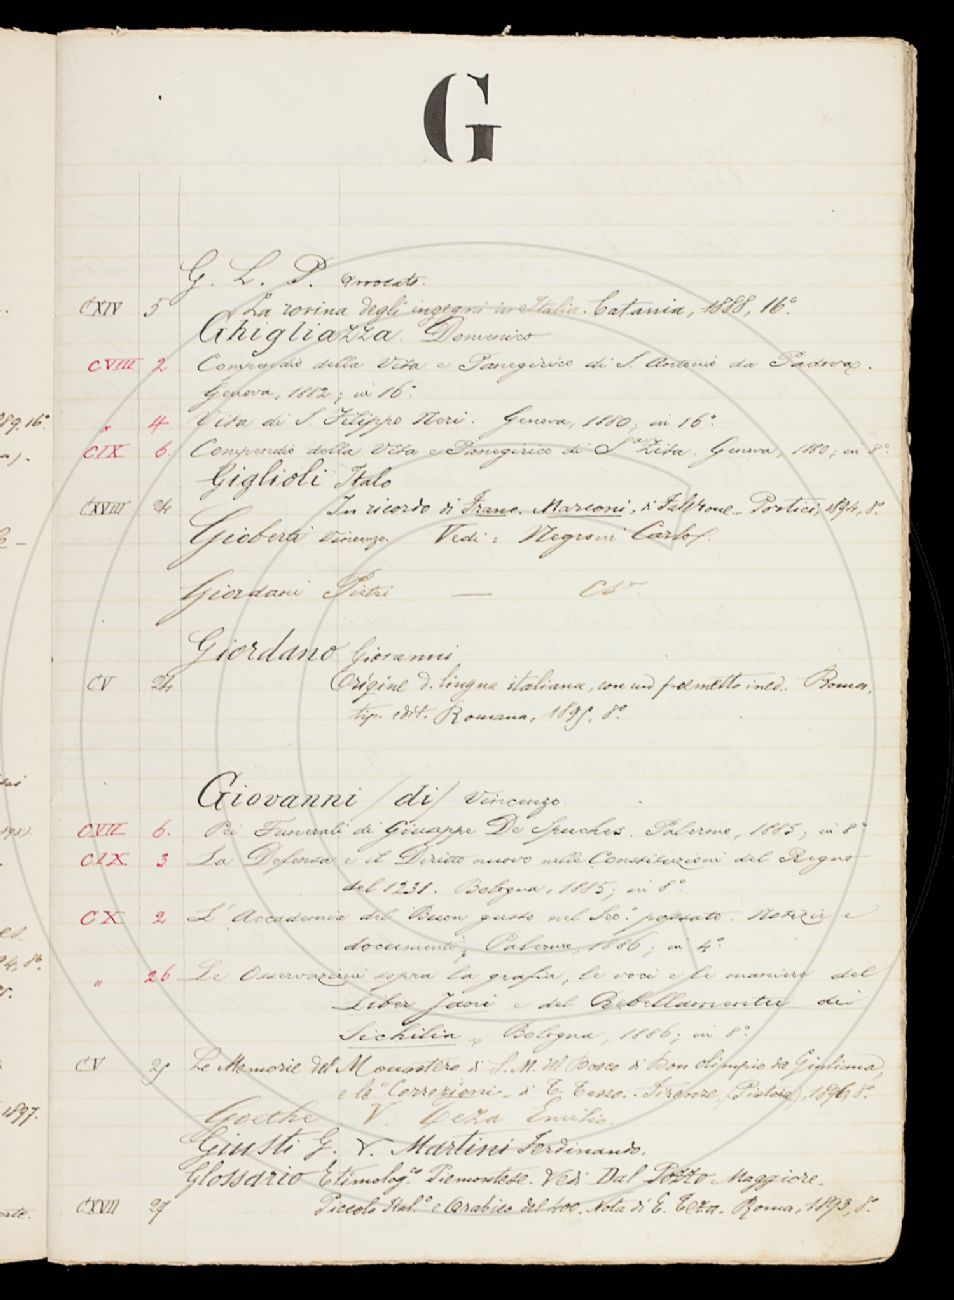 G
G. L. P. avvocato.
CXIV 5 La rovina degli ingegni in Italia. Catania, 1888, 16°
Ghigliazza. Domenico
CVIII 2 Compendio della Vita e Panegirico di S. Antonio da Padova.
Genova, 1882; in 16°
" 4 Vita di S. Filippo Neri. Genova, 1880, in 16°
CIX 6. Compendio della Vita e Panegirico di Sta Zita. Genova, 1880; in 8°
Giglioli Italo
CXVIII 24 In ricordo di Franc. Marconi, di Portici, 1894, 8°
Gioberti Vincenzo. Vedi: Negroni Carlo.
Giordani Pietro — Co
Giordano Giovanni
CV 24 Origine d. lingua italiana, con un ined. Roma,
tip. edit. Romana, 1895, 8°
Giovanni /di/ Vincenzo.
CVII 6. Pei Funerali di Giuseppe De Spuches. Palermo, 1885; in 8°
CIX 3 La Defensa e il Diritto nuovo nelle Constituzioni del Regno
del 1231. Bologna, 1885; in 8°
CX 2 L'Accademia del Buon gusto nel Sec.° passato. Notizie e
documenti, Palermo, 1886; in 4°
" 26 Le Osservazioni sopra la grafia, le voci e le maniere del
Liber Jani e del Rebellamentu di
Sichilia, Bologna, 1886; in 8°
CV 25 Le Memorie del Monastero di S. M. del Bosco di Don Olimpio da Giuliana
e le "Correzioni" di T. Tasso. Firenze, (Pistoia), 1896, 8°
Goethe V. Teza Emilio.
Giusti G. V. Martini Ferdinando.
Glossario Etimolog.° Piemontese. Vedi Dal Pozzo Maggiore.
CXVII 27 Piccolo Ital.° e Arabico del 400. Nota di E. Teza. Roma, 1893, 8°
89. 16°
1897.